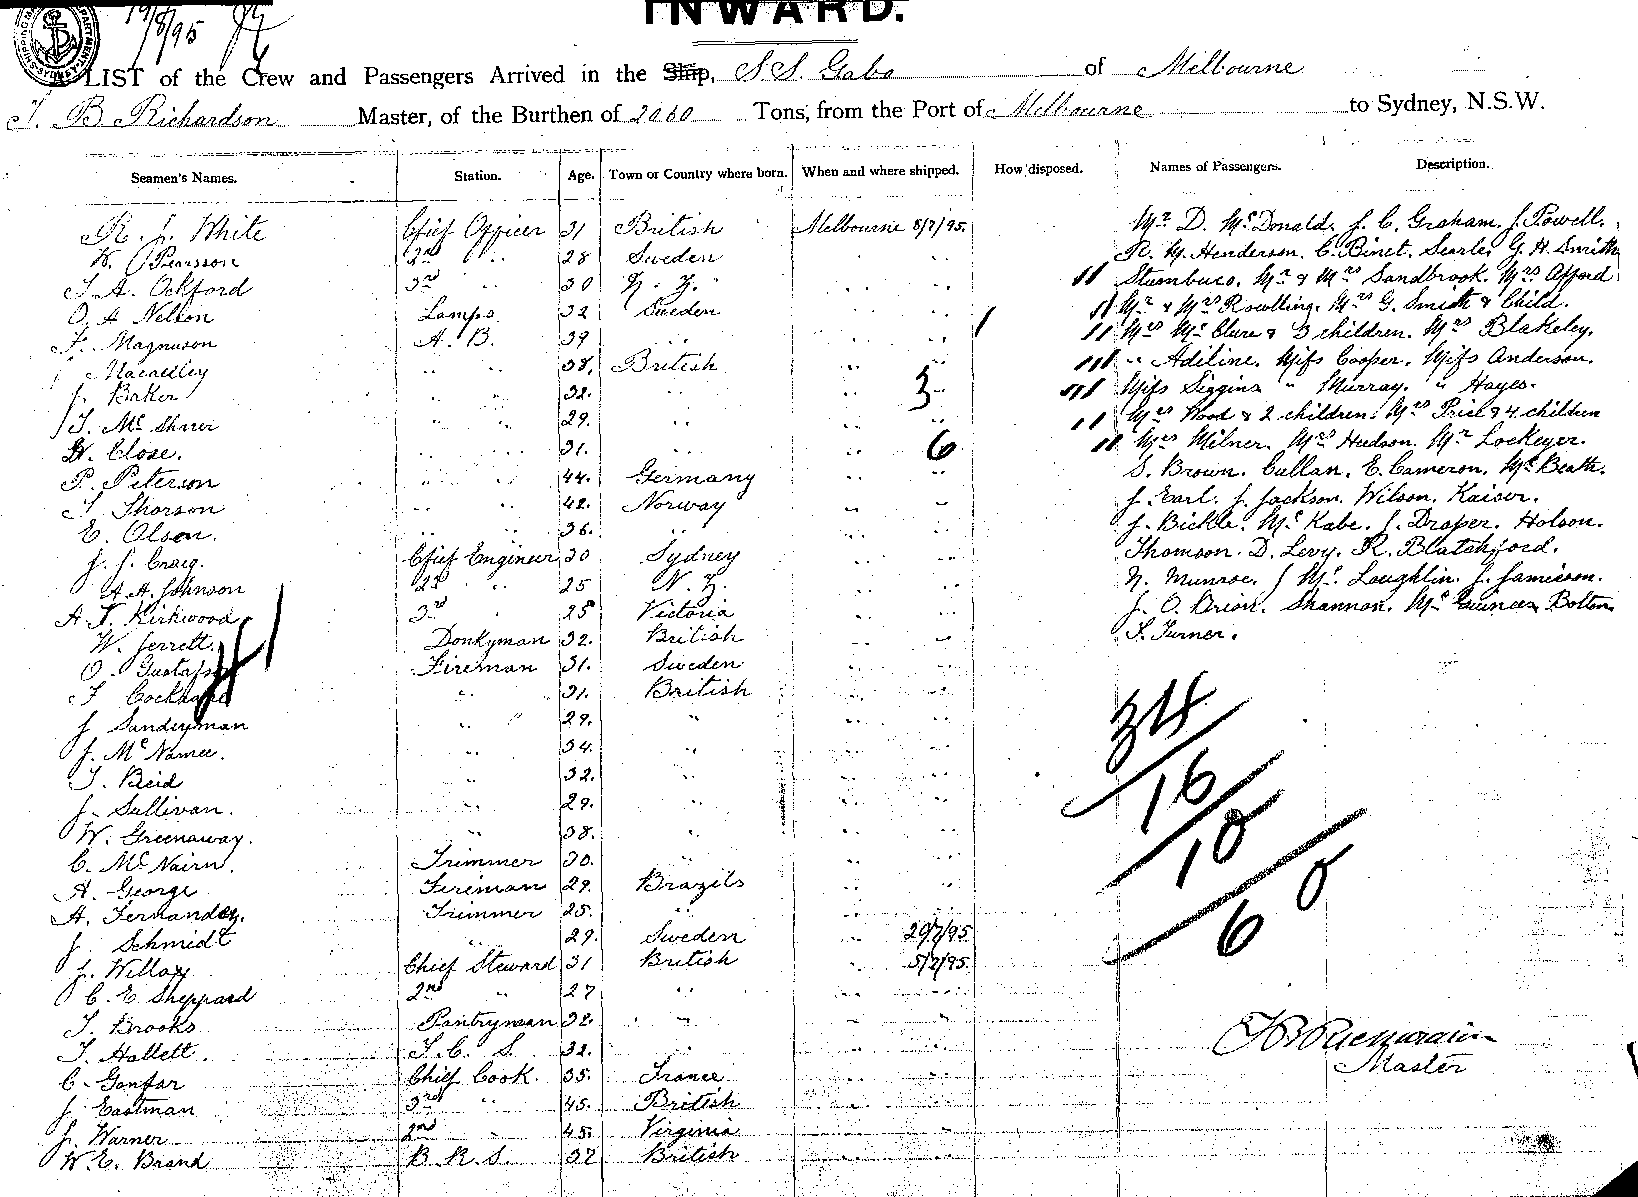 INWARD.
19/8/95
LIST of the Crew and Passengers Arrived in the Ship, S.S. Gabo of Melbourne
T. B. Richardson Master, of the Burthen of 2060 Tons, from the Port of Melbourne to Sydney, N.S.W.
Seamen's Names. Station. Age. Town or Country where born. When and where shipped. How disposed. Names of Passengers. Description.
R. J. White Chief Officer 31 British Melbourne 5/7/95. Mr D. McDonald, J. C. Graham, J. Powell.
W. Pearsson 2nd " 28 Sweden " " R. M. Henderson. C. Binet. Searle. G. H. Smith
T. A. Ockford 3rd " 30 N. Z. " " Mr & Mrs Sandbrook. Mrs Offord
O. A. Nelson Lamps 32 Sweden " " Mr & Mrs Rowlling. Mrs G. Smith & Child.
F. Magnuson A. B. 39 " " " Mrs McClure & 3 children. Mrs Blakeley.
Macaulley " " 38. British " " " Adiline. Miss Cooper. Miss Anderson.
J. Baker " " 32. " " 3 Miss Siggins " Murray. " Hayes.
T. Mc " " 29. " " " Mrs Wood & 2 children. Mrs Price & 4 children
W. Close. " " 31. " " 6 Mrs Milner. Mrs Hudson. Mr Lockeyer.
P. Peterson " " 44. Germany " " S. Brown. Cullan. E. Cameron. McBeath.
T. Thorson " " 42. Norway " " J. Earl. J. Jackson. Wilson. Kaiser.
E. Olson. " " 36. " " " J. Bickle. McKabe. J. Draper. Holson.
J. J. Craig. Chief Engineer 30 Sydney " " Thomson. D. Levy. R. Blatchford.
A. H. Johnson 2nd " 25 N. Z. " " N. Munroe. J McLoughlin. J. Jamieson.
A. T. Kirkwood 3rd " 25 Victoria " " J. O. Brion. Shannon. Bolton
W. Jerrett. Donkyman 32. British " " S. Turner.
O. Gustafson Fireman 31. Sweden " "
F. " " 31. British " "
J. Sandeyman " " 29. " " "
J. McNamee. " 34. " " " 34
T. Reid " 32. " " " 16
J. Sullivan. " 29. " " " 10
W. Greenaway. " 38. " " " 8
C. McNairn. Trimmer 30. " " "
A. George Fireman 29. Brazils " " 6
A. Fernandez. Trimmer 25. " " "
J. Schmidt " 29. Sweden " 29/7/95
J. Willox Chief Steward 31 British " 5/7/95.
C. E. Sheppard 2nd " 27 " " "
T. Brooks Pantryman 32. " " "
T. Hallett. F. C. S. 32. " " "
C. Gonfar Chief Cook. 35. France " "
J. Eastman 3rd " 45. British " "
J. Warner 2nd " 45. Virginia " "
W. E. Brand B. R. S. 37 British " "
T B Richardson
Master